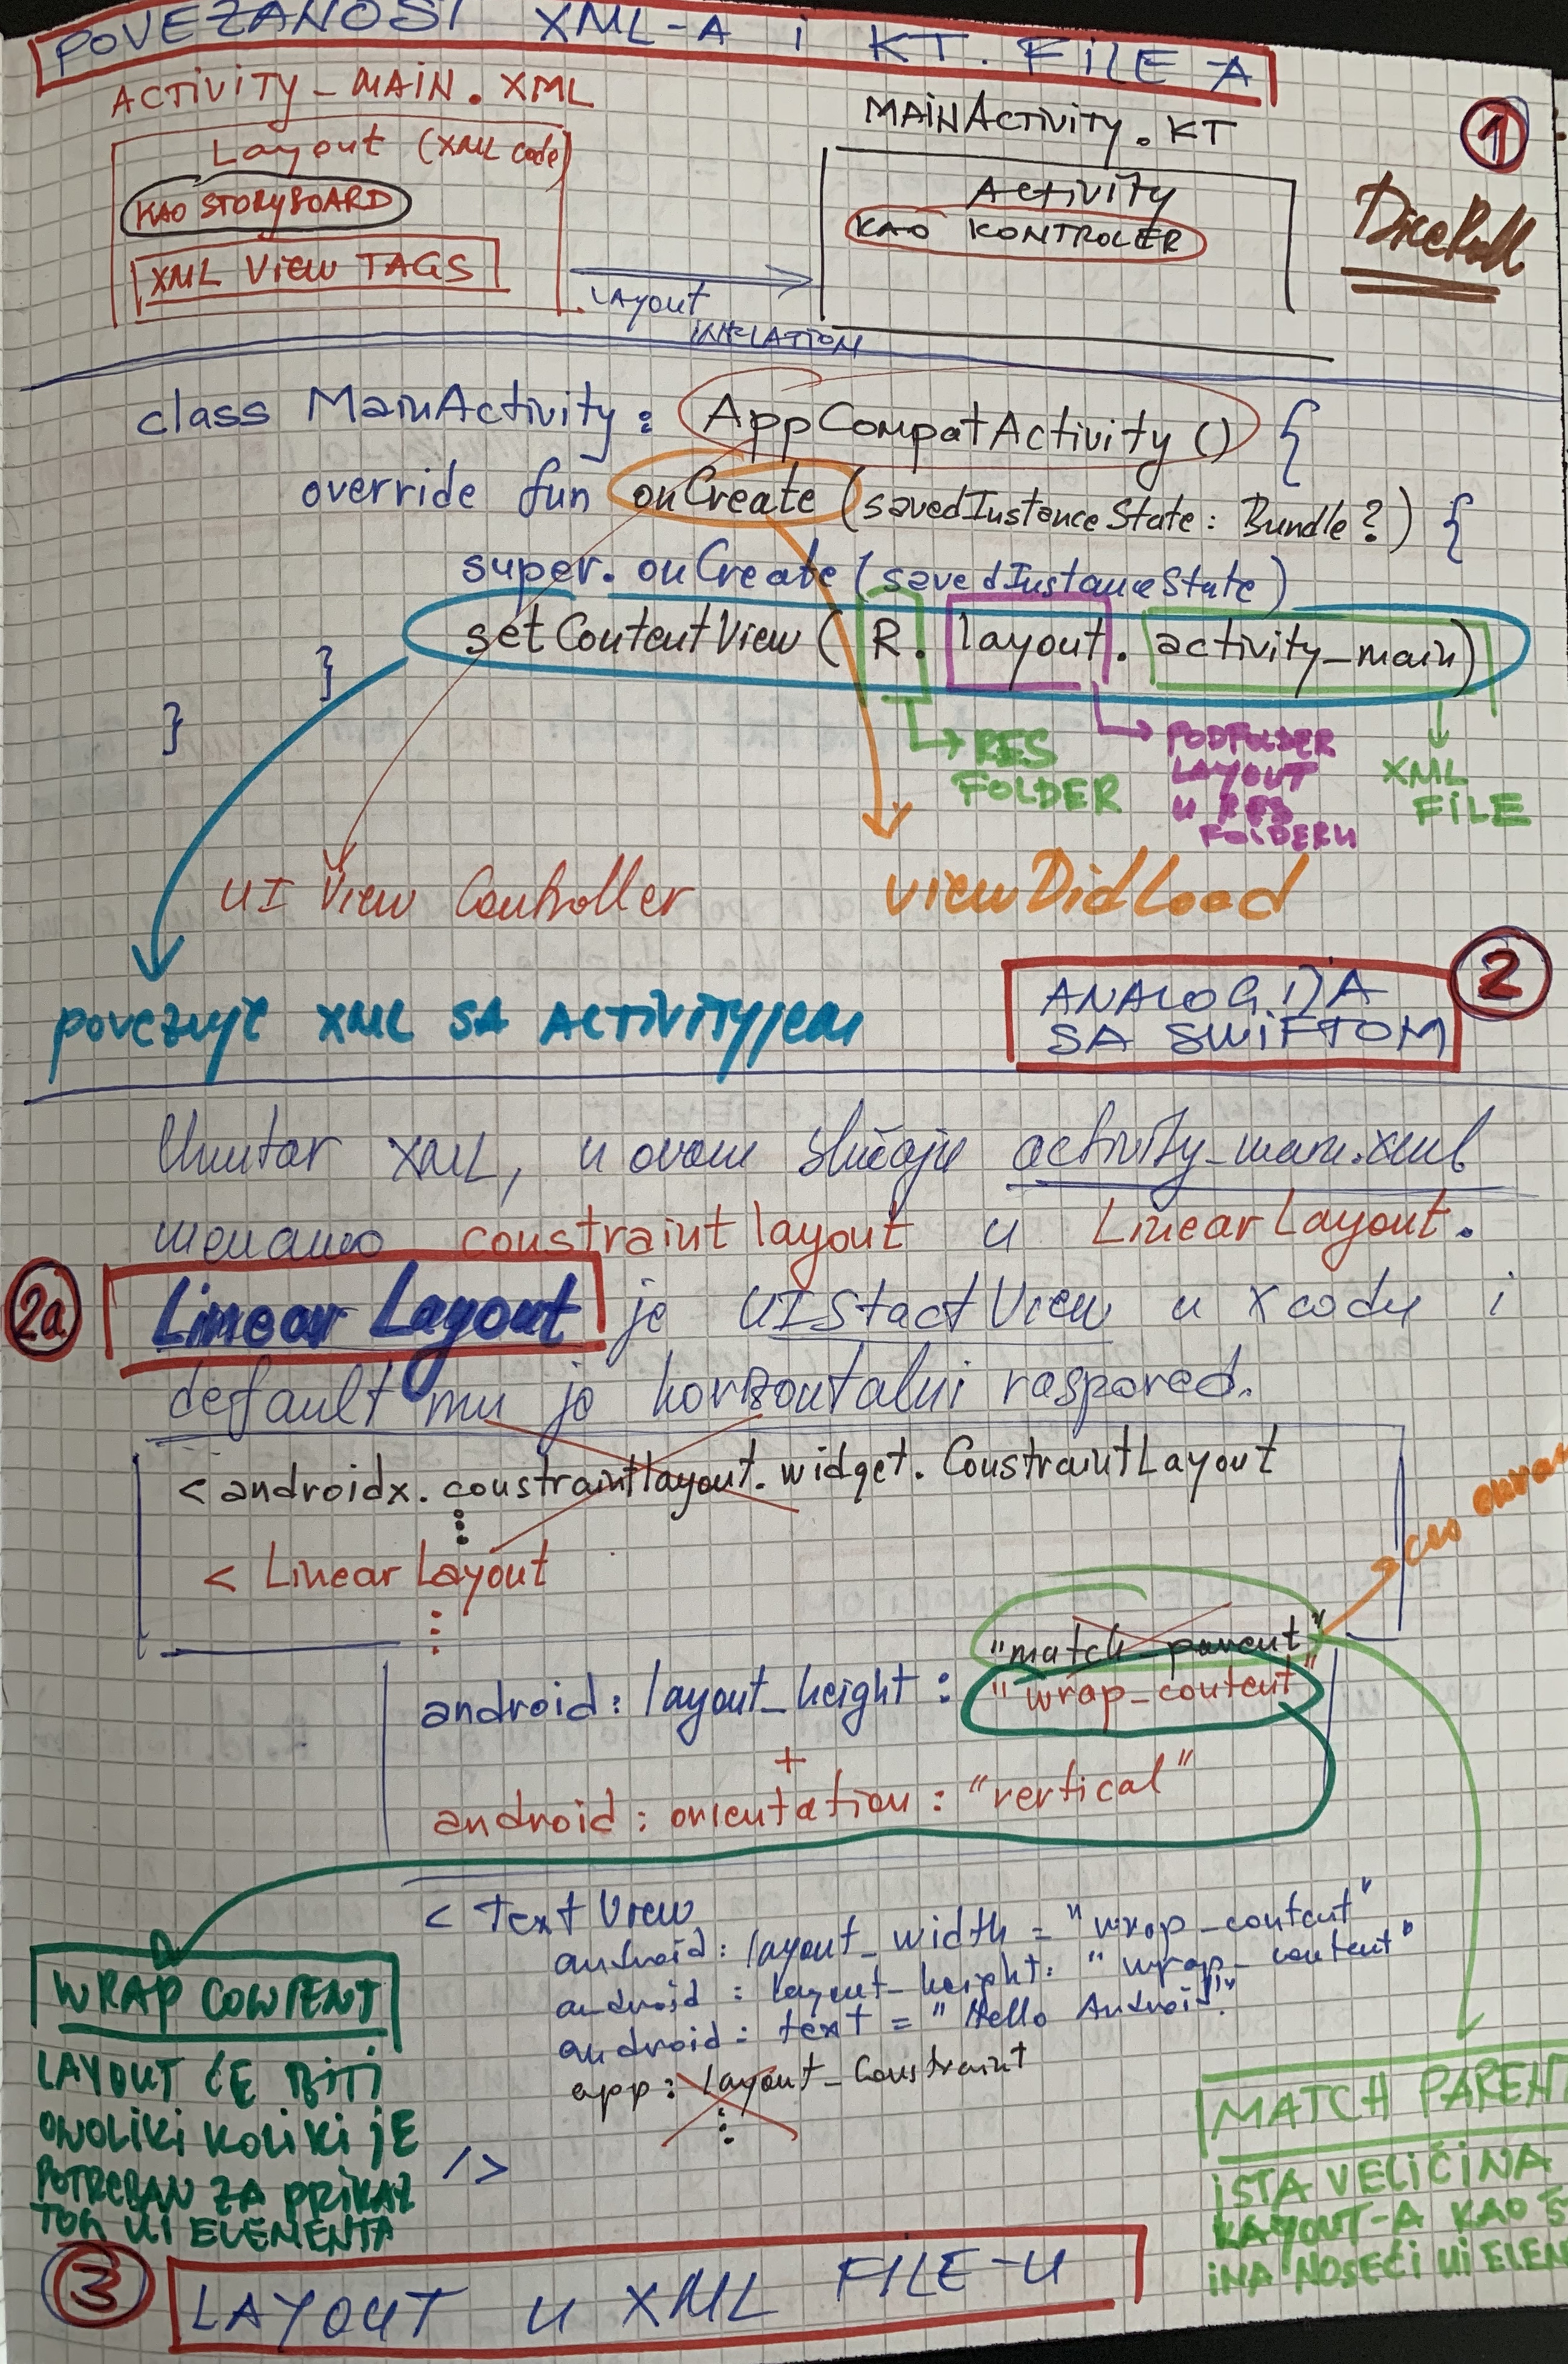 POVEZANOST XML-A i KT. FILE-A
ACTIVITY_MAIN.XML
Layout (XML code)
KAO STORYBOARD
XML VIEW TAGS
LAYOUT
INFLATION
MAINActivity.KT
Activity
KAO KONTROLER
1
DiceRoll
class MainActivity: AppCompatActivity() {
override fun onCreate(savedInstanceState: Bundle?) {
super.onCreate(savedInstanceState)
setContentView(R.layout.activity_main)
}
}
RES
FOLDER
PODFOLDER
LAYOUT
U RES
FOLDERU
XML
FILE
UI View Controller
viewDidLoad
povezuje XML SA ACTIVITYjem
ANALOGIJA
SA SWIFTOM
2
Unutar XML, u ovom slučaju activity_main.xml
menamo constraintlayout u LinearLayout.
2a
Linear Layout je UIStactView u Xcodu i
default mu je horizontalni raspored.
<androidx.constraintlayout.widget.ConstraintLayout
< LinearLayout
ceo ekran
"match_parent"
android:layout_height: "wrap_content"
+
android:orientation: "vertical"
< TextView
android:layout_width = "wrap_content"
android:layout_height: "wrap_content"
android:text = "Hello Android!"
app:layout_Constraint
/>
WRAP CONTENT
LAYOUT ĆE BITI
ONOLIKI KOLIKI JE
POTREBAN ZA PRIKAZ
TOG UI ELEMENTA
MATCH PAREN
ISTA VELIČINA
LAYOUT-A KAO Š
IMA NOSEĆI UI ELEM
3
LAYOUT U XML FILE-U